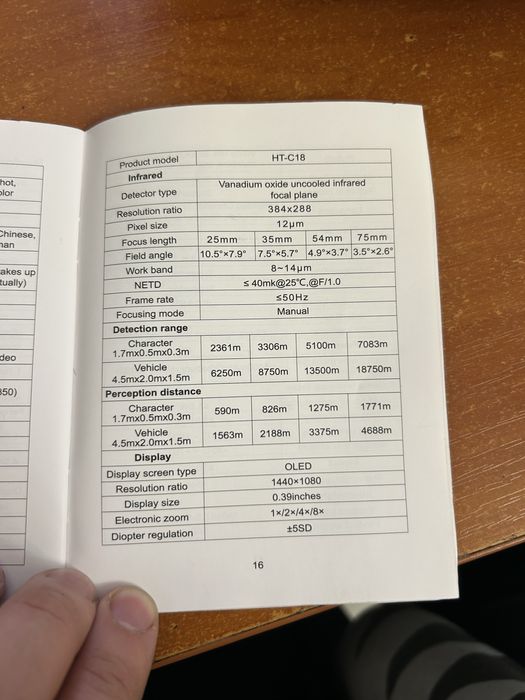 hot,
olor
Chinese,
man
akes up
tually)
deo
350)
Product model HT-C18
Infrared
Detector type Vanadium oxide uncooled infrared
focal plane
Resolution ratio 384x288
Pixel size 12μm
Focus length 25mm 35mm 54mm 75mm
Field angle 10.5°×7.9° 7.5°×5.7° 4.9°×3.7° 3.5°×2.6°
Work band 8~14μm
NETD ≤ 40mk@25℃,@F/1.0
Frame rate ≤50Hz
Focusing mode Manual
Detection range
Character
1.7mx0.5mx0.3m 2361m 3306m 5100m 7083m
Vehicle
4.5mx2.0mx1.5m 6250m 8750m 13500m 18750m
Perception distance
Character
1.7mx0.5mx0.3m 590m 826m 1275m 1771m
Vehicle
4.5mx2.0mx1.5m 1563m 2188m 3375m 4688m
Display
Display screen type OLED
Resolution ratio 1440×1080
Display size 0.39inches
Electronic zoom 1×/2×/4×/8×
Diopter regulation ±5SD
16